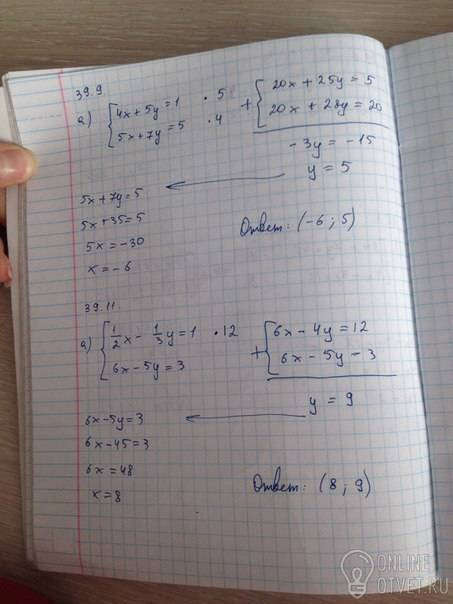 39.9
а) {4x + 5y = 1 · 5
{5x + 7y = 5 · 4
+ {20x + 25y = 5
{20x + 28y = 20
-3y = -15
y = 5
5x + 7y = 5
5x + 35 = 5
5x = -30
x = -6
Ответ: (-6; 5)
39.11.
а) {1/2x - 1/3y = 1 · 12
{6x - 5y = 3
+ {6x - 4y = 12
{6x - 5y = 3
y = 9
6x - 5y = 3
6x - 45 = 3
6x = 48
x = 8
Ответ: (8; 9)
ONLINE
OTVET.RU